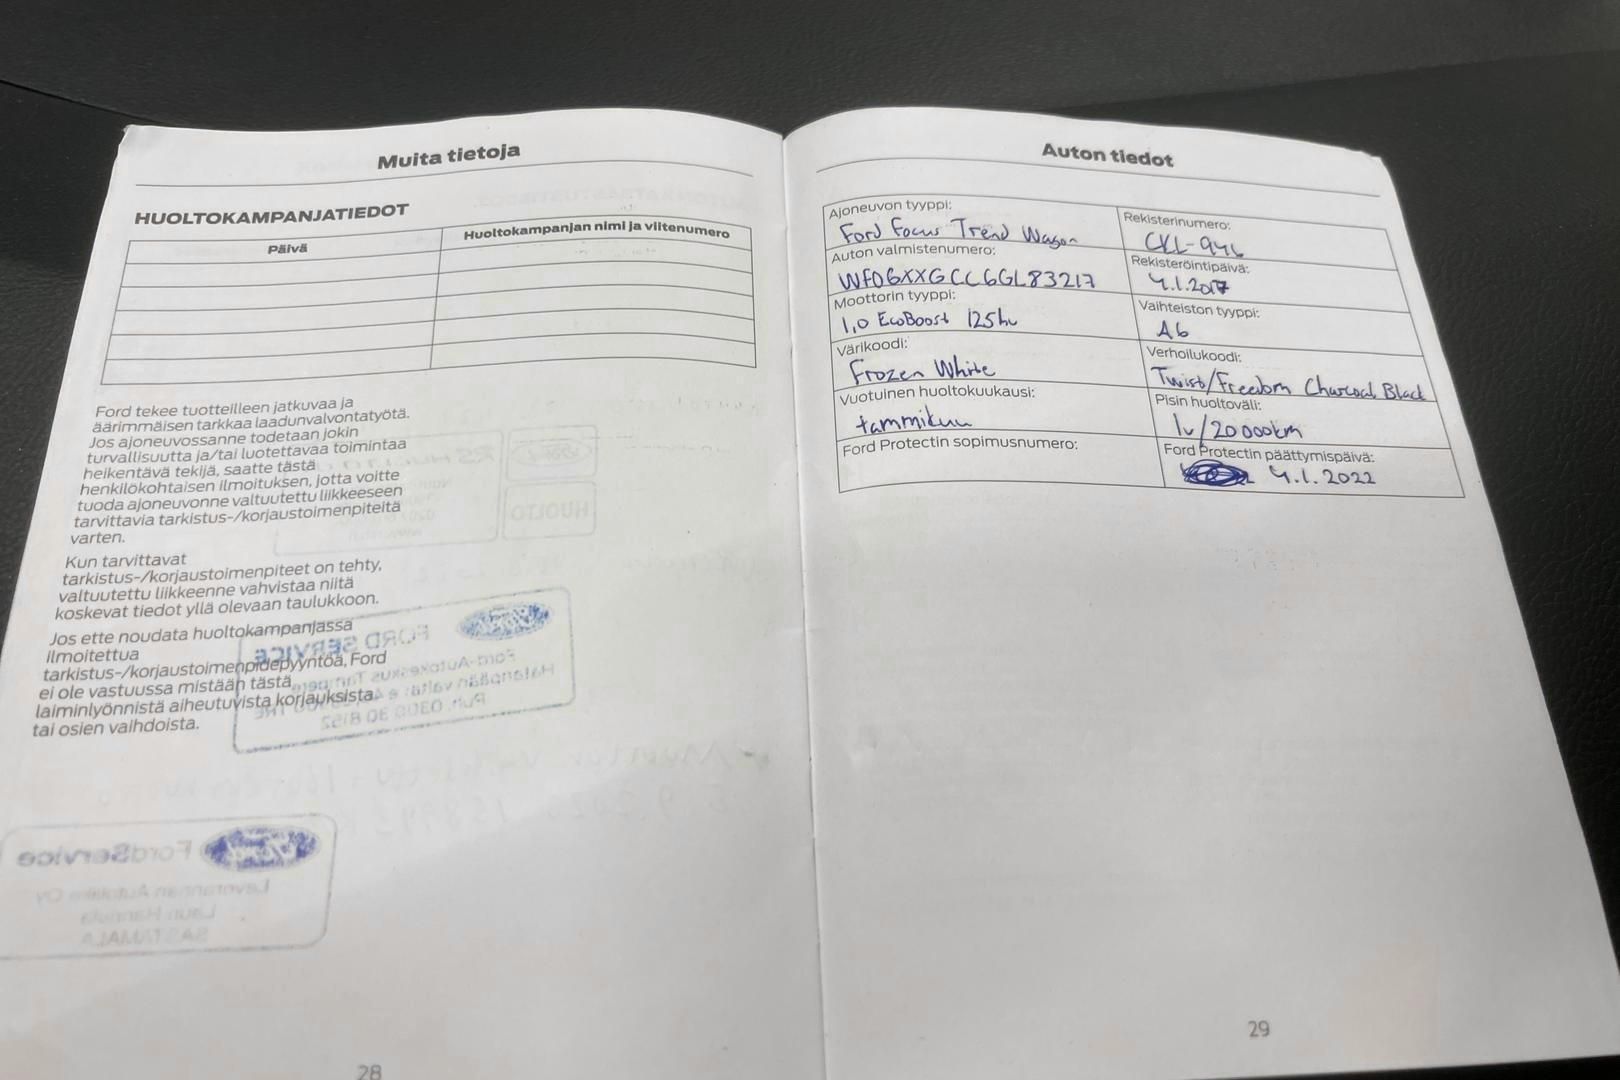 Muita tietoja
HUOLTOKAMPANJATIEDOT
Päivä
Huoltokampanjan nimi ja viitenumero
Ford tekee tuotteilleen jatkuvaa ja
äärimmäisen tarkkaa laadunvalvontatyötä.
Jos ajoneuvossanne todetaan jokin
turvallisuutta ja/tai luotettavaa toimintaa
heikentävä tekijä, saatte tästä
henkilökohtaisen ilmoituksen, jotta voitte
tuoda ajoneuvonne valtuutettu liikkeeseen
tarvittavia tarkistus-/korjaustoimenpiteitä
varten.
Kun tarvittavat
tarkistus-/korjaustoimenpiteet on tehty,
valtuutettu liikkeenne vahvistaa niitä
koskevat tiedot yllä olevaan taulukkoon.
Jos ette noudata huoltokampanjassa
ilmoitettua
tarkistus-/korjaustoimenpidepyyntöä, Ford
ei ole vastuussa mistään tästä
laiminlyönnistä aiheutuvista korjauksista
tai osien vaihdoista.
FORD SERVICE
Ford-Autokeskus Tampere
Puh. 0300 30 8152
FordService
SASTAMALA
HUOLTO
28
Auton tiedot
Ajoneuvon tyyppi:
Ford Focus Trend Wagon
Rekisterinumero:
CKL-946
Auton valmistenumero:
WF06XXGCC6GL83217
Rekisteröintipäivä:
4.1.2017
Moottorin tyyppi:
1,0 EcoBoost 125hv
Vaihteiston tyyppi:
A6
Värikoodi:
Frozen White
Verhoilukoodi:
Twist/Freedom Charcoal Black
Vuotuinen huoltokuukausi:
tammikuu
Pisin huoltoväli:
1v/20 000km
Ford Protectin sopimusnumero:
Ford Protectin päättymispäivä:
4.1.2022
29